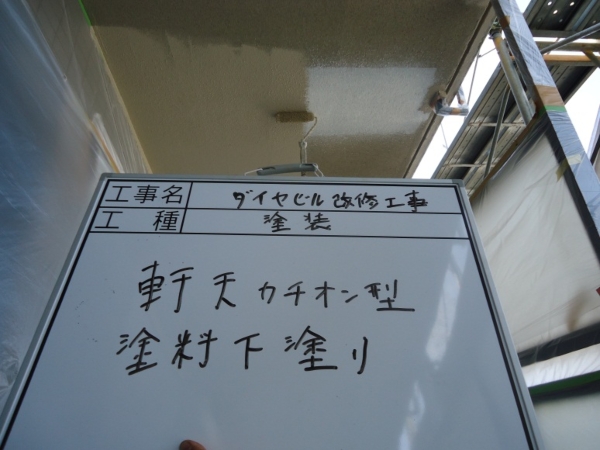 工事名 ダイヤビル改修工事
工種 塗装
軒天カチオン型
塗料下塗り